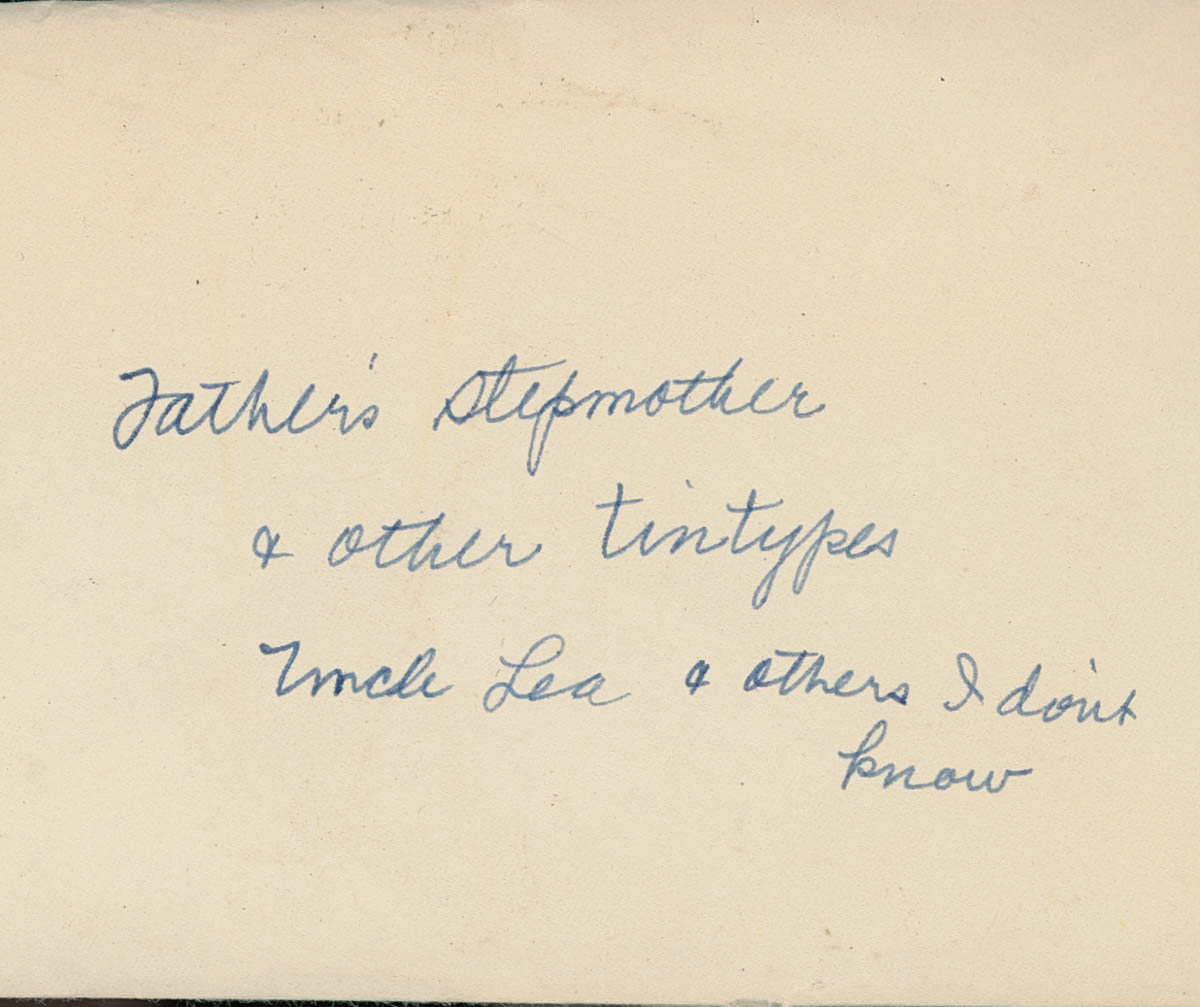 Father's stepmother
& other tintypes
Uncle Lea & others I don't
know